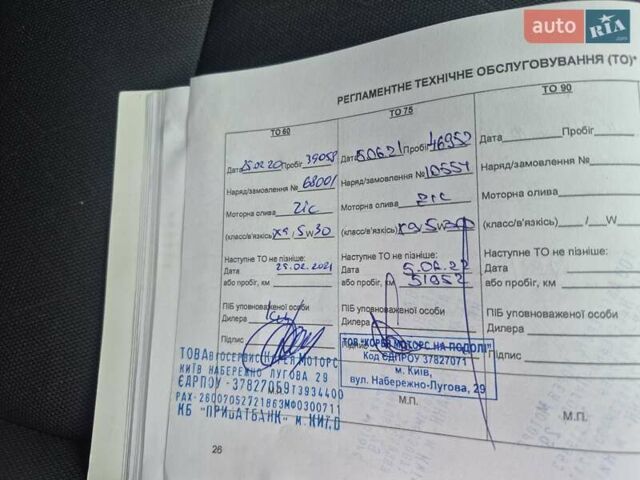 auto RIA .com
РЕГЛАМЕНТНЕ ТЕХНІЧНЕ ОБСЛУГОВУВАННЯ (ТО)*
ТО 60
Дата 25.02.20 Пробіг 39058
Наряд/замовлення № 68001
Моторна олива Zic
(класс/в'язкість) X9, 5 W 30
Наступне ТО не пізніше:
Дата 25.02.2021
або пробіг, км
ПІБ уповноваженої особи
Дилера
Підпис
ТО 75
Дата 5.06.21 Пробіг 46952
Наряд/замовлення № 10554
Моторна олива Zic
(класс/в'язкість) X9 5 W 30
Наступне ТО не пізніше:
Дата 5.06.22
або пробіг, км 51952
ПІБ уповноваженої особи
Дилера
Підпис
ТО 90
Дата Пробіг
Наряд/замовлення №
Моторна олива
(класс/в'язкість) / W
Наступне ТО не пізніше:
Дата
або пробіг, км
ПІБ уповноваженої особи
Дилера
Підпис
М.П.
КИЇВ НАБЕРЕЖНО ЛУГОВА 29
ЄДРПОУ -37827059 Т3934400
РАХ-26007052721863 МФО300711
КБ "ПРИВАТБАНК" м. КИЇВ
М.П.
ТОВ "КОРЕЯ МОТОРС НА ПОДОЛІ"
Код ЄДПРОУ 37827071
м. Київ,
вул. Набережно-Лугова, 29
М.П.
26